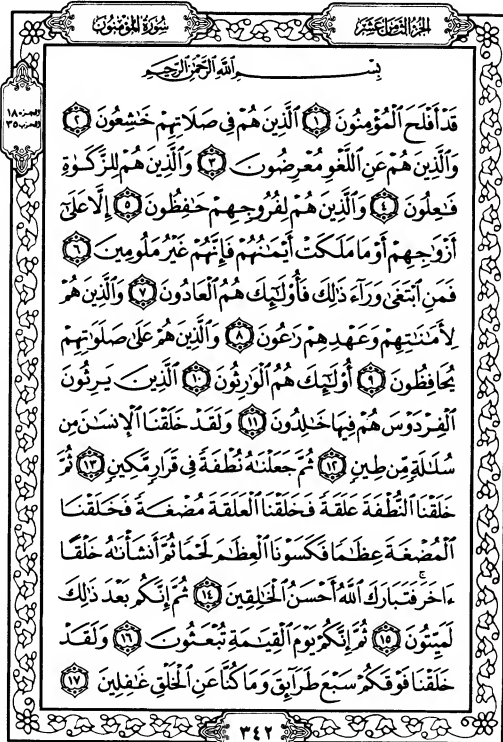 الجزء الثامن عشر
سورة المؤمنون
الجزء ١٨
الحزب ٣٥
بِسْمِ اللَّهِ الرَّحْمَٰنِ الرَّحِيمِ
قَدْ أَفْلَحَ الْمُؤْمِنُونَ ١ الَّذِينَ هُمْ فِي صَلَاتِهِمْ خَاشِعُونَ ٢
وَالَّذِينَ هُمْ عَنِ اللَّغْوِ مُعْرِضُونَ ٣ وَالَّذِينَ هُمْ لِلزَّكَوٰةِ
فَاعِلُونَ ٤ وَالَّذِينَ هُمْ لِفُرُوجِهِمْ حَافِظُونَ ٥ إِلَّا عَلَىٰ
أَزْوَاجِهِمْ أَوْ مَا مَلَكَتْ أَيْمَانُهُمْ فَإِنَّهُمْ غَيْرُ مَلُومِينَ ٦
فَمَنِ ابْتَغَىٰ وَرَاءَ ذَٰلِكَ فَأُولَٰئِكَ هُمُ الْعَادُونَ ٧ وَالَّذِينَ هُمْ
لِأَمَانَاتِهِمْ وَعَهْدِهِمْ رَاعُونَ ٨ وَالَّذِينَ هُمْ عَلَىٰ صَلَوَاتِهِمْ
يُحَافِظُونَ ٩ أُولَٰئِكَ هُمُ الْوَارِثُونَ ١٠ الَّذِينَ يَرِثُونَ
الْفِرْدَوْسَ هُمْ فِيهَا خَالِدُونَ ١١ وَلَقَدْ خَلَقْنَا الْإِنسَانَ مِن
سُلَالَةٍ مِّن طِينٍ ١٢ ثُمَّ جَعَلْنَاهُ نُطْفَةً فِي قَرَارٍ مَّكِينٍ ١٣ ثُمَّ
خَلَقْنَا النُّطْفَةَ عَلَقَةً فَخَلَقْنَا الْعَلَقَةَ مُضْغَةً فَخَلَقْنَا
الْمُضْغَةَ عِظَامًا فَكَسَوْنَا الْعِظَامَ لَحْمًا ثُمَّ أَنشَأْنَاهُ خَلْقًا
ءَاخَرَ فَتَبَارَكَ اللَّهُ أَحْسَنُ الْخَالِقِينَ ١٤ ثُمَّ إِنَّكُم بَعْدَ ذَٰلِكَ
لَمَيِّتُونَ ١٥ ثُمَّ إِنَّكُمْ يَوْمَ الْقِيَامَةِ تُبْعَثُونَ ١٦ وَلَقَدْ
خَلَقْنَا فَوْقَكُمْ سَبْعَ طَرَائِقَ وَمَا كُنَّا عَنِ الْخَلْقِ غَافِلِينَ ١٧
٣٤٢